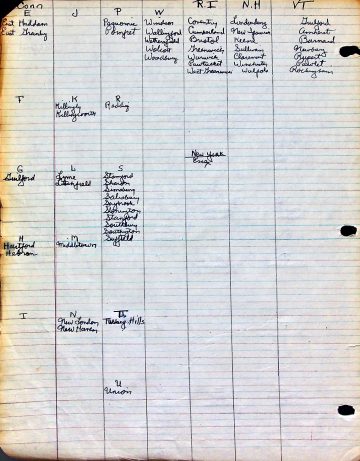 Conn
E J P W R I N.H VT
East Haddam
East Granby
Pomfret
Windsor
Wallingford
Wethersfield
Wolcott
Woodbury
Coventry
Cumberland
Bristol
Greenwich
Warwick
Pawtucket
West Greenwich
Londonderry
New Ipswich
Keene
Sullivan
Claremont
Winchester
Walpole
Guilford
Barnard
Newbury
Rupert
Pawlet
Rockingham
F K R
Killingly
Killingworth
Redding
New York
G L S
Guilford
Lyme
Litchfield
Stamford
Sharon
Simsbury
Salisbury
Saybrook
Stonington
Stratford
Southbury
Southington
Suffield
H M
Hartford
Hebron
Middletown
I N Th
New London
New Haven
Hills
U
Union